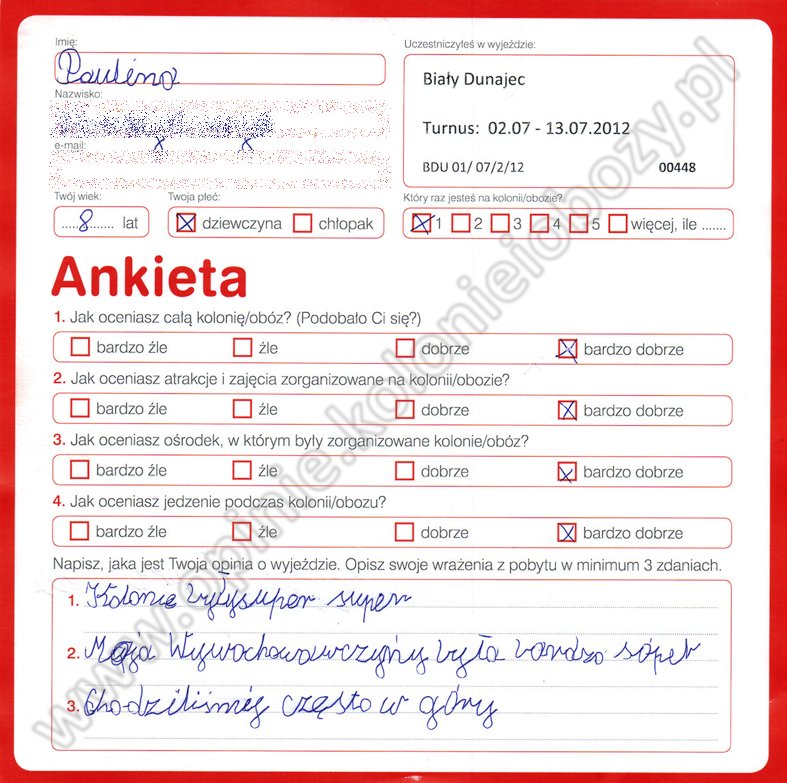 Imię:
Paulina
Uczestniczyłeś w wyjeździe:
Biały Dunajec
Turnus: 02.07 - 13.07.2012
BDU 01/ 07/2/12 00448
Nazwisko:
e-mail:
Twój wiek:
8 lat
Twoja płeć:
dziewczyna chłopak
Który raz jesteś na kolonii/obozie?
1 2 3 4 5 więcej, ile .......
Ankieta
1. Jak oceniasz całą kolonię/obóz? (Podobało Ci się?)
bardzo źle źle dobrze bardzo dobrze
2. Jak oceniasz atrakcje i zajęcia zorganizowane na kolonii/obozie?
bardzo źle źle dobrze bardzo dobrze
3. Jak oceniasz ośrodek, w którym były zorganizowane kolonie/obóz?
bardzo źle źle dobrze bardzo dobrze
4. Jak oceniasz jedzenie podczas kolonii/obozu?
bardzo źle źle dobrze bardzo dobrze
Napisz, jaka jest Twoja opinia o wyjeździe. Opisz swoje wrażenia z pobytu w minimum 3 zdaniach.
1. Kolonie były super super
2. Moja była bardzo sóper
3. często w góry
www.opinie.kolonieiobozy.pl